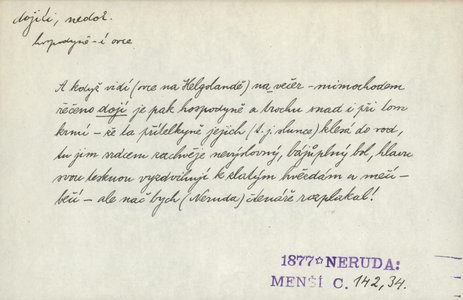 dojiti, nedok.
hospodyně - i ovce
A když vidí (ovce na Helgolandě) na večer - mimochodem
řečeno dojí je pak hospodyně a trochu snad i při tom
krmí - že ta přítelkyně jejich (t. j. slunce) klesá do vod,
tu jim srdcem zachvěje nevýslovný, bájuplný bol, hlavu
svou tesknou vyzdvihují k zlatým hvězdám a mečí-
bečí - ale nač bych (Neruda) čtenáře rozplakal!
1877 NERUDA:
MENŠÍ C. 142,34.